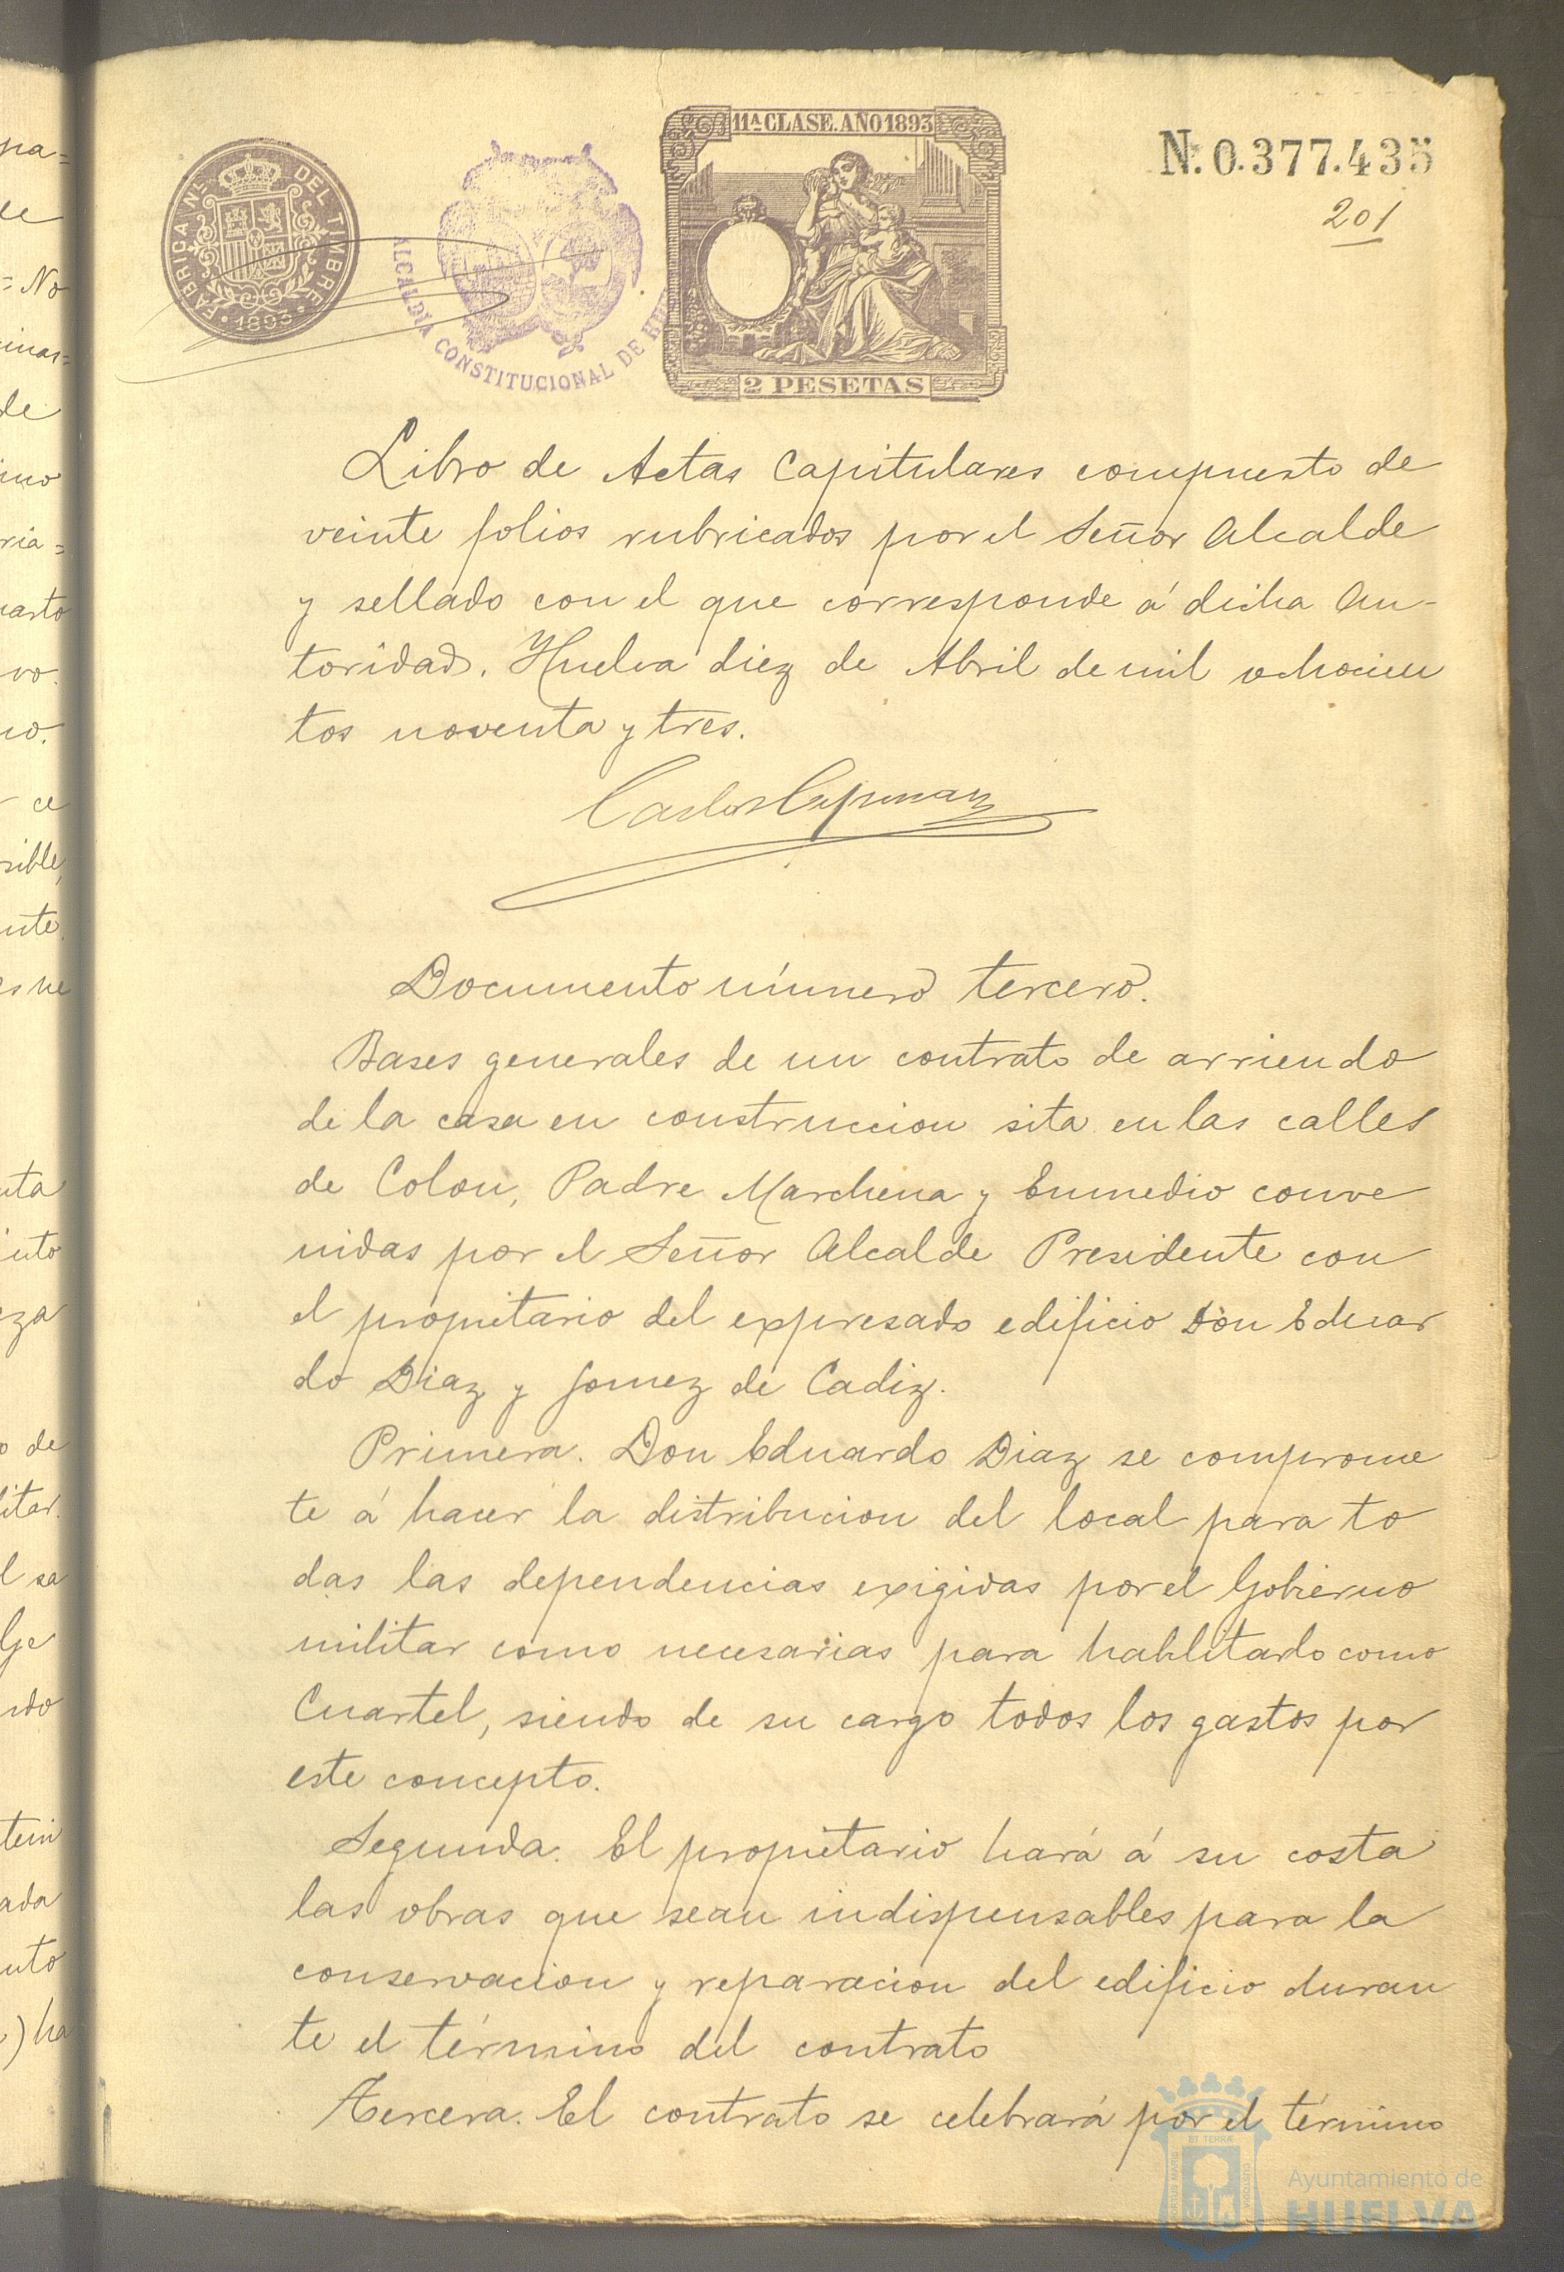 11ª CLASE. AÑO 1893
N. 0.377.435
201
FABRICA NL. DEL TIMBRE
1893
ALCALDIA CONSTITUCIONAL DE
2 PESETAS
Libro de Actas Capitulares compuesto de
veinte folios rubricados por el Señor Alcalde
y sellado con el que corresponde á dicha Au-
toridad. Huelva diez de Abril de mil ochocien
tos noventa y tres.
Carlos
Documento número tercero.
Bases generales de un contrato de arriendo
de la casa en construccion sita en las calles
de Colon, Padre Marchena y Enmedio conve
nidas por el Señor Alcalde Presidente con
el propietario del expresado edificio Don Eduar
do Diaz y Gomez de Cadiz.
Primera. Don Eduardo Diaz se comprome
te á hacer la distribucion del local para to
das las dependencias exigidas por el Gobierno
militar como necesarias para hablitarlo como
Cuartel, siendo de su cargo todos los gastos por
este concepto.
Segunda. El propietario hará á su costa
las obras que sean indispensables para la
conservacion y reparacion del edificio duran
te el término del contrato
Tercera. El contrato se celebrará por el término
Ayuntamiento de
HUELVA